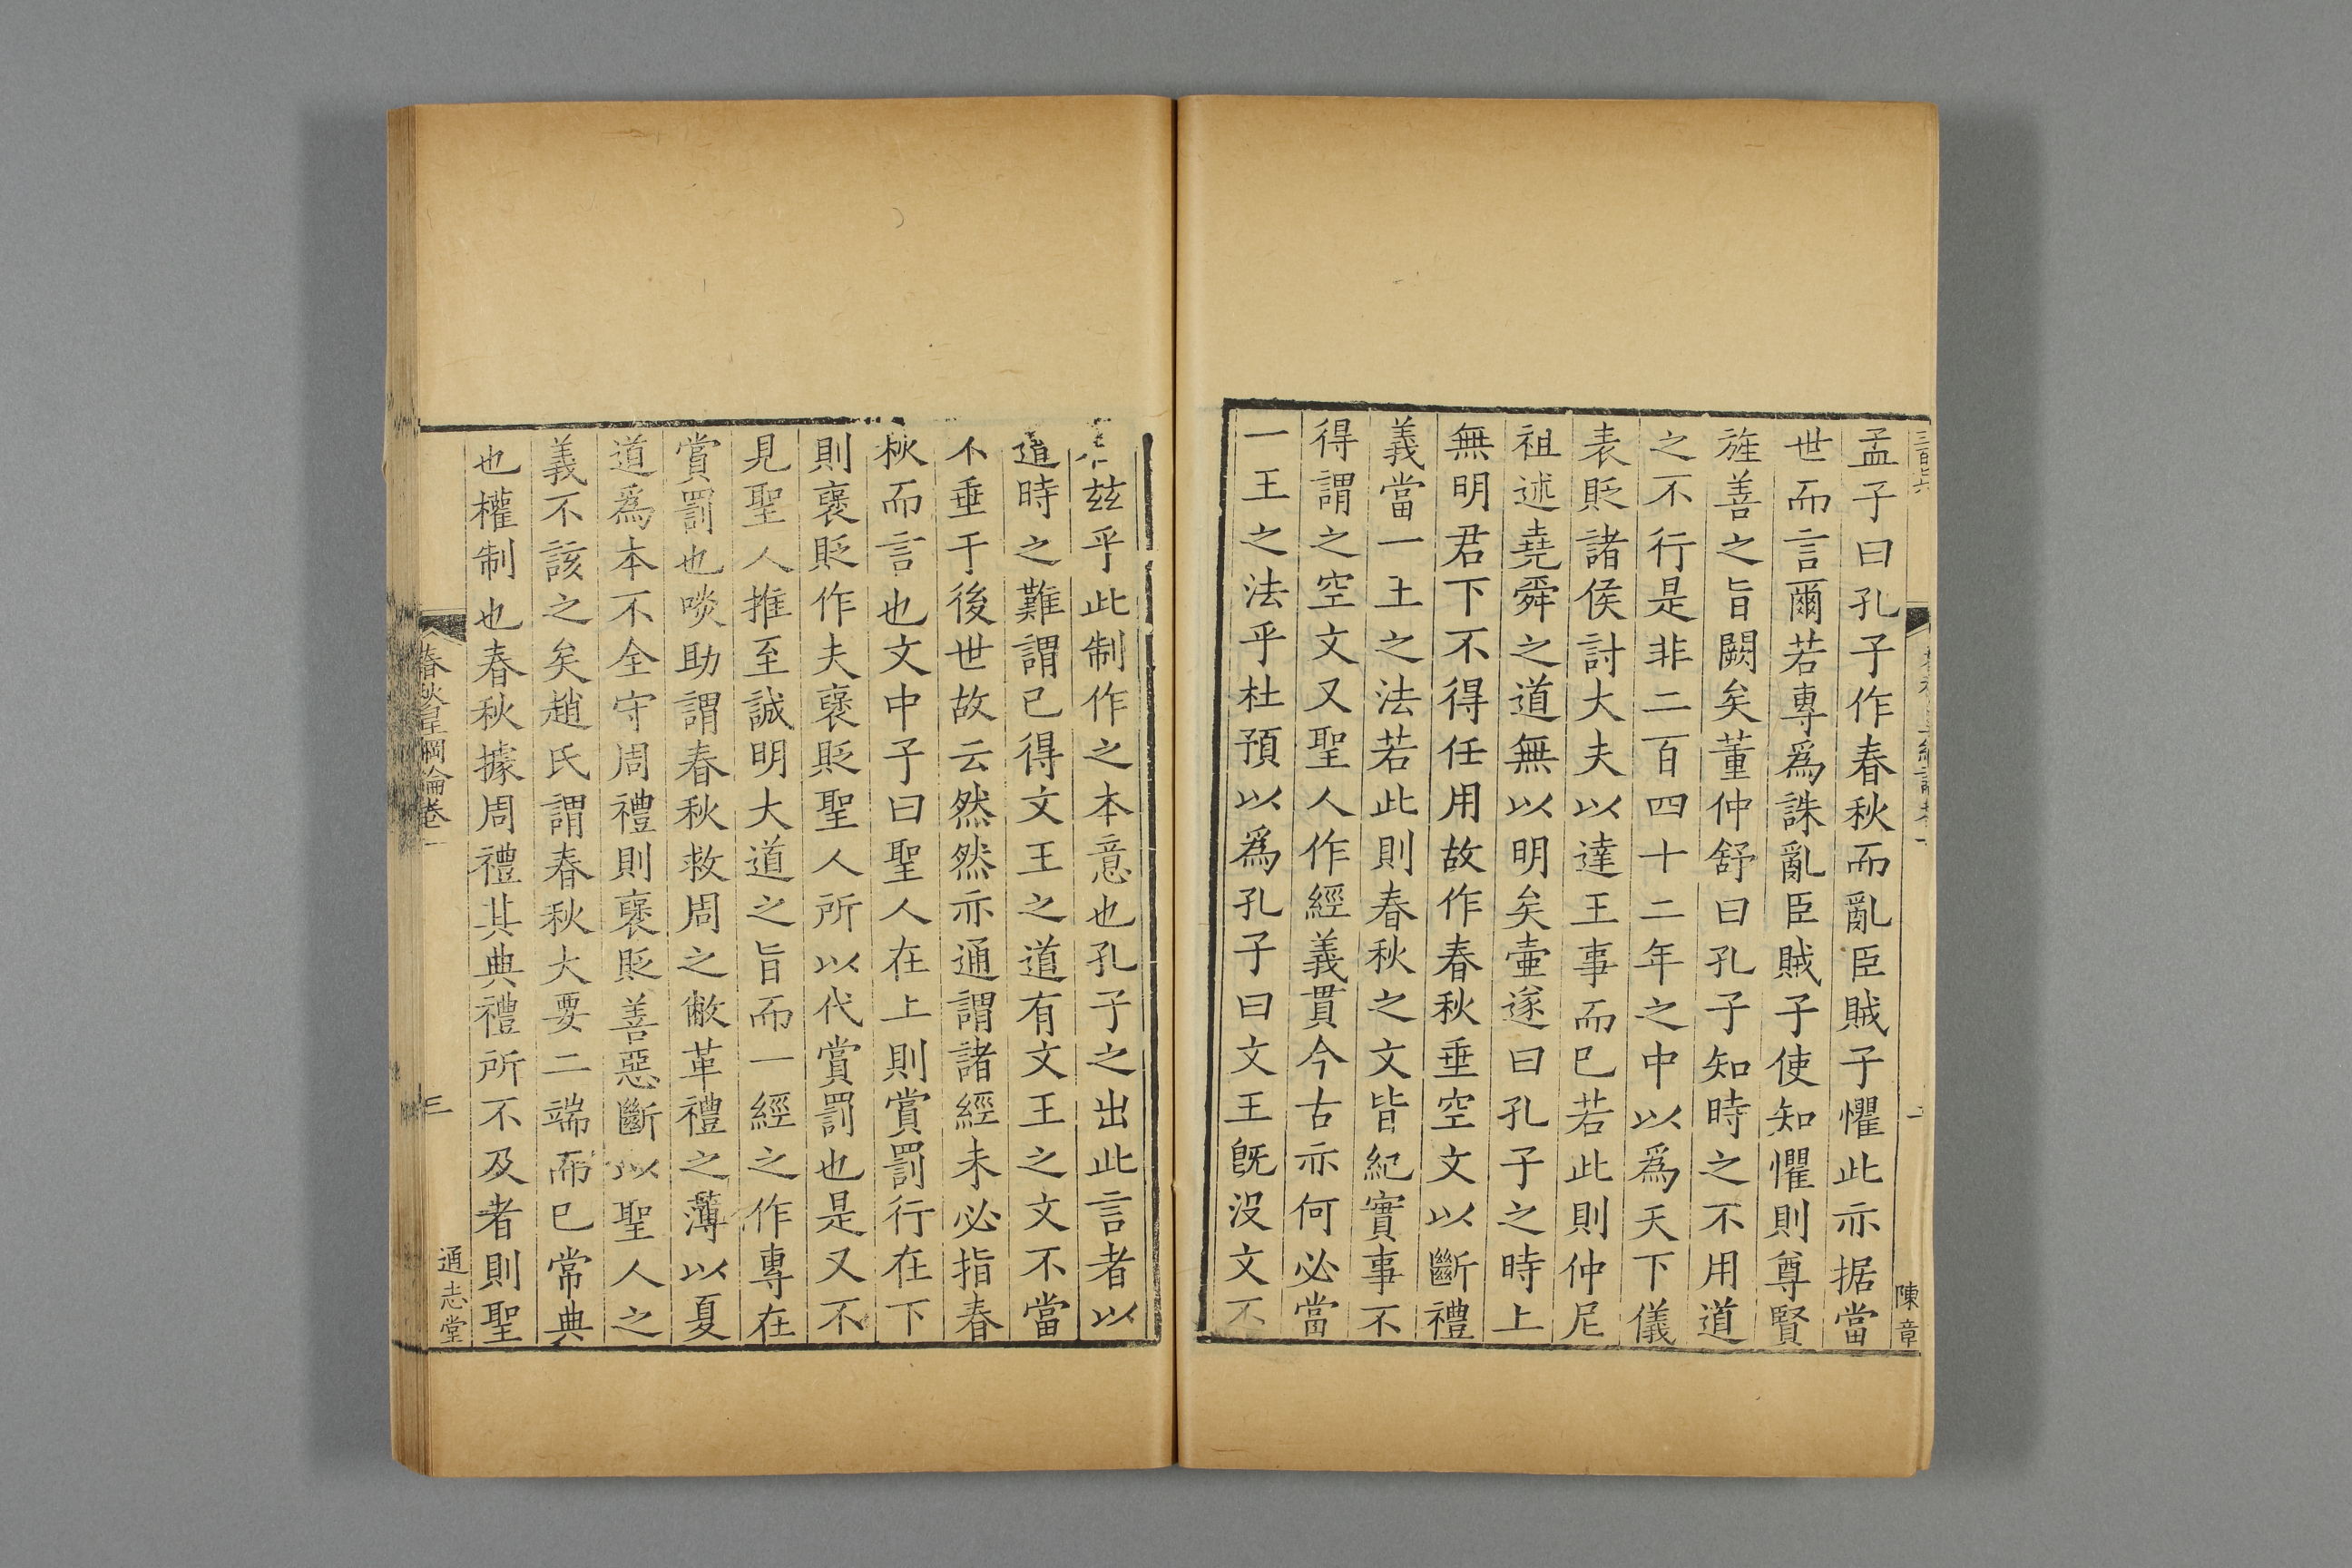 孟子曰孔子作春秋而亂臣賊子懼此亦据當
世而言爾若專爲誅亂臣賊子使知懼則尊賢
旌善之旨闕矣董仲舒曰孔子知時之不用道
之不行是非二百四十二年之中以爲天下儀
表貶諸侯討大夫以達王事而已若此則仲尼
祖述堯舜之道無以明矣壷遂曰孔子之時上
無明君下不得任用故作春秋垂空文以斷禮
義當一王之法若此則春秋之文皆紀實事不
得謂之空文又聖人作經義貫今古亦何必當
一王之法乎杜預以爲孔子曰文王旣没文不
在茲乎此制作之本意也孔子之出此言者以
道時之難謂已得文王之道有文王之文不當
不垂于後世故云然然亦通謂諸經未必指春
秋而言也文中子曰聖人在上則賞罰行在下
則襃貶作夫襃貶聖人所以代賞罰也是又不
見聖人推至誠明大道之旨而一經之作專在
賞罰也啖助謂春秋救周之敝革禮之薄以夏
道爲本不全守周禮則襃貶善惡斷以聖人之
義不該之矣趙氏謂春秋大要二端而已常典
也權制也春秋據周禮其典禮所不及者則聖
春秋皇綱論卷一
三
通志堂
陳章